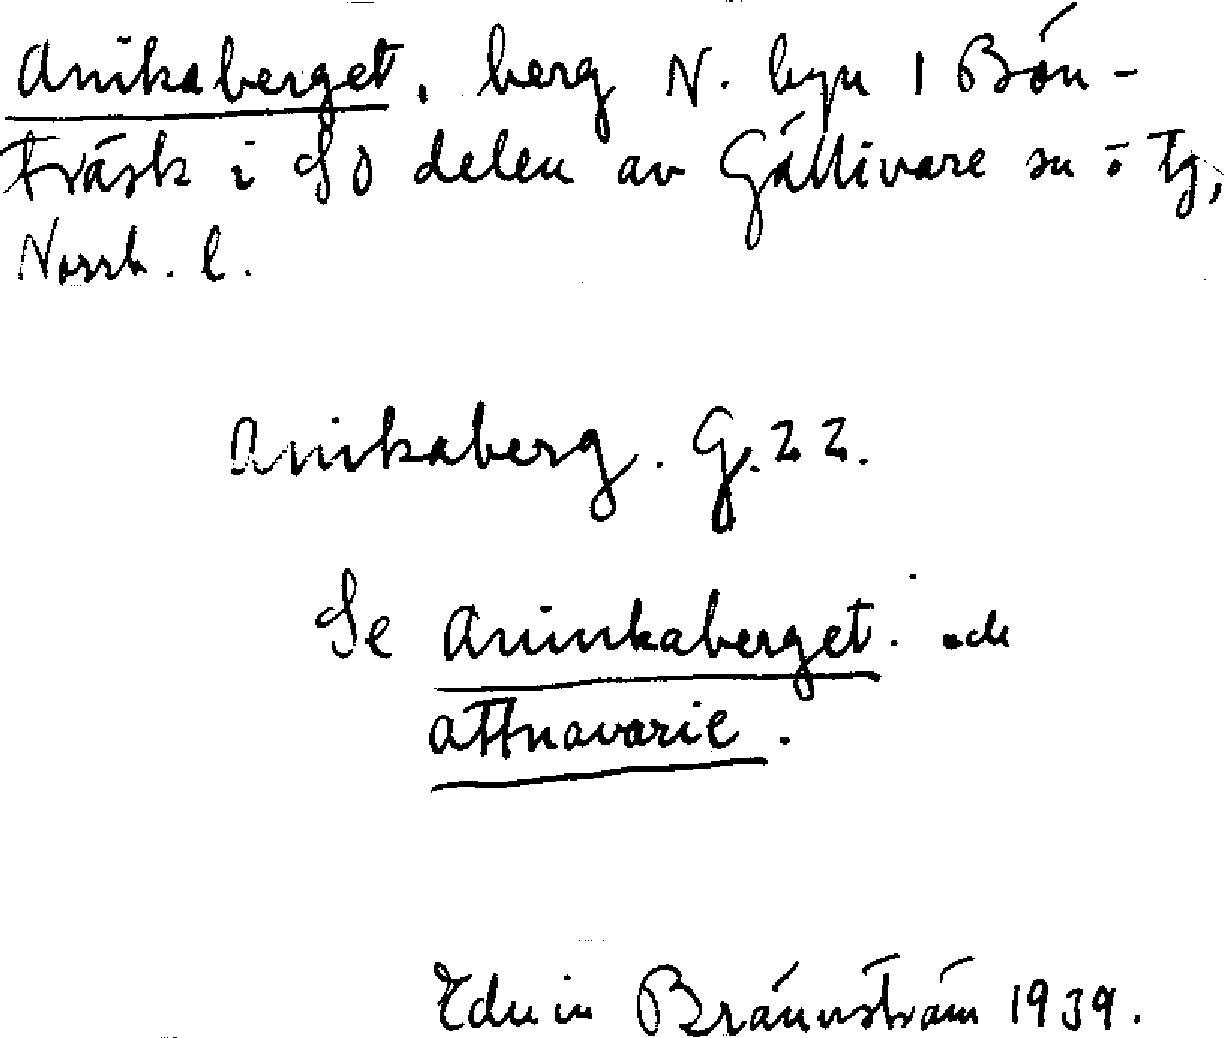 Anikaberget, berg N. byn i Bön-
träsk i SO delen av Gällivare sn o tg,
Norrb. l.
Anikaberg. G.22.
Se Aninkaberget. och
Attnavarie.
Edvin Brännström 1939.